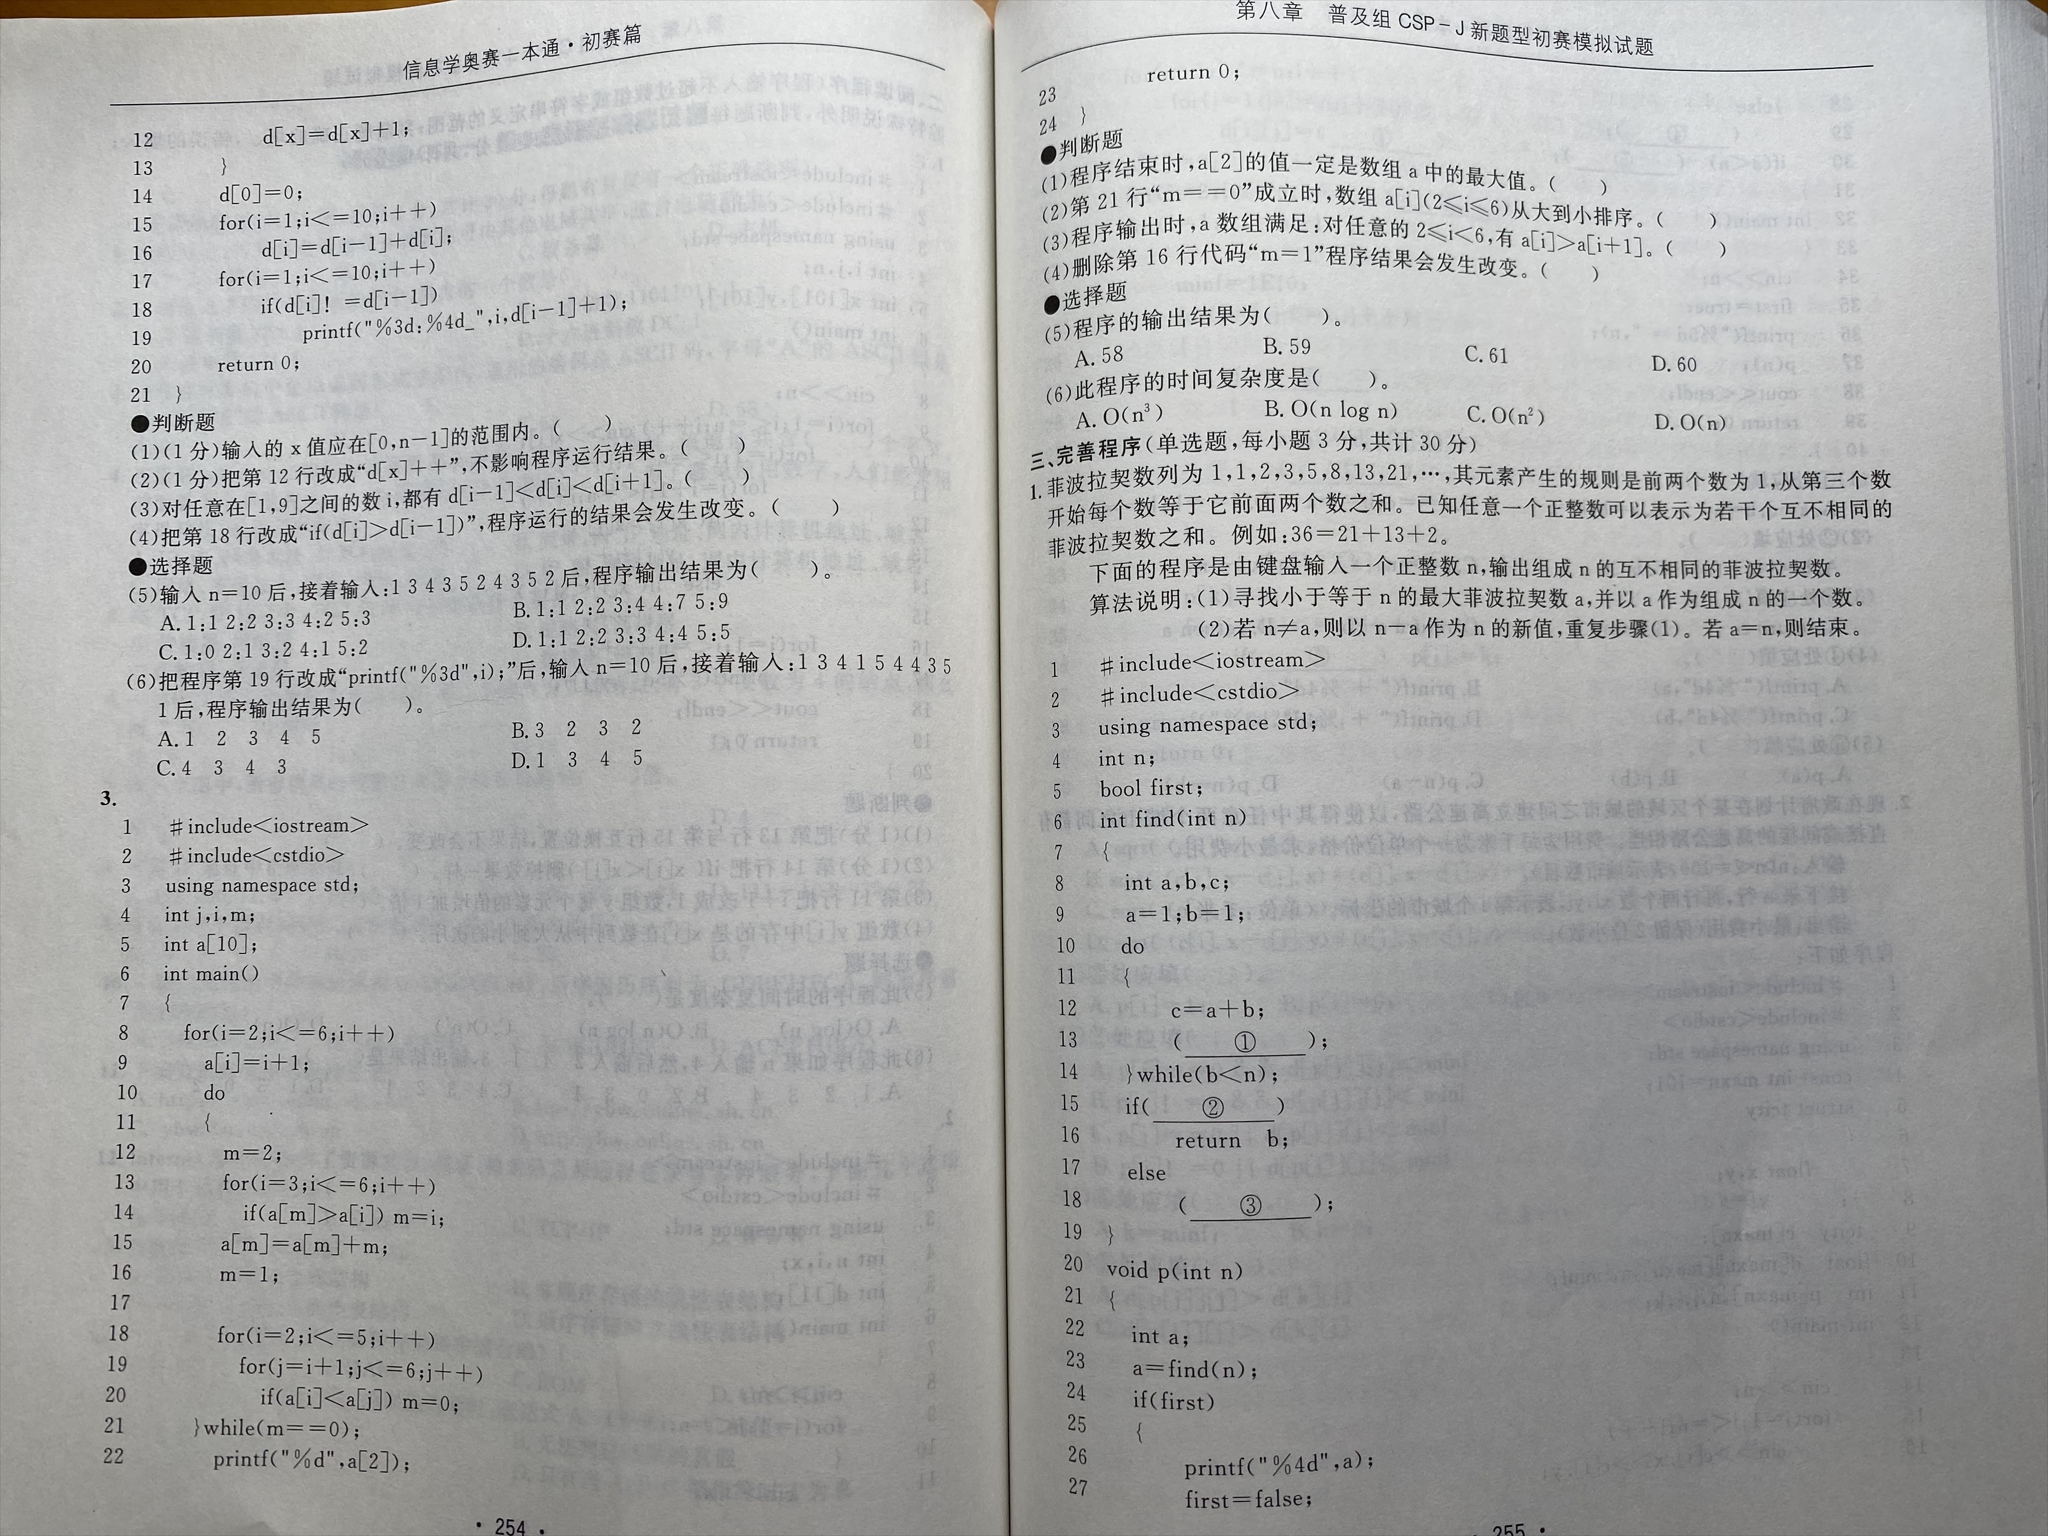 信息学奥赛一本通·初赛篇
12 d[x]=d[x]+1;
13 }
14 d[0]=0;
15 for(i=1;i<=10;i++)
16 d[i]=d[i-1]+d[i];
17 for(i=1;i<=10;i++)
18 if(d[i]! =d[i-1])
19 printf("%3d:%4d_",i,d[i-1]+1);
20 return 0;
21 }
●判断题
(1)(1 分)输入的 x 值应在[0,n-1]的范围内。( )
(2)(1 分)把第 12 行改成“d[x]++”,不影响程序运行结果。( )
(3)对任意在[1,9]之间的数 i,都有 d[i-1]<d[i]<d[i+1]。( )
(4)把第 18 行改成“if(d[i]>d[i-1])”,程序运行的结果会发生改变。( )
●选择题
(5)输入 n=10 后,接着输入:1 3 4 3 5 2 4 3 5 2 后,程序输出结果为( )。
A. 1:1 2:2 3:3 4:2 5:3 B. 1:1 2:2 3:4 4:7 5:9
C. 1:0 2:1 3:2 4:1 5:2 D. 1:1 2:2 3:3 4:4 5:5
(6)把程序第 19 行改成“printf("%3d",i);”后,输入 n=10 后,接着输入:1 3 4 1 5 4 4 3 5
1 后,程序输出结果为( )。
A. 1 2 3 4 5 B. 3 2 3 2
C. 4 3 4 3 D. 1 3 4 5
3.
1 #include<iostream>
2 #include<cstdio>
3 using namespace std;
4 int j,i,m;
5 int a[10];
6 int main()
7 {
8 for(i=2;i<=6;i++)
9 a[i]=i+1;
10 do
11 {
12 m=2;
13 for(i=3;i<=6;i++)
14 if(a[m]>a[i]) m=i;
15 a[m]=a[m]+m;
16 m=1;
17
18 for(i=2;i<=5;i++)
19 for(j=i+1;j<=6;j++)
20 if(a[i]<a[j]) m=0;
21 }while(m==0);
22 printf("%d",a[2]);
· 254 ·
第八章 普及组 CSP-J 新题型初赛模拟试题
23 return 0;
24 }
●判断题
(1)程序结束时,a[2]的值一定是数组 a 中的最大值。( )
(2)第 21 行“m==0”成立时,数组 a[i](2≤i≤6)从大到小排序。( )
(3)程序输出时,a 数组满足:对任意的 2≤i<6,有 a[i]>a[i+1]。( )
(4)删除第 16 行代码“m=1”程序结果会发生改变。( )
●选择题
(5)程序的输出结果为( )。
A. 58 B. 59 C. 61 D. 60
(6)此程序的时间复杂度是( )。
A. O(n³) B. O(n log n) C. O(n²) D. O(n)
三、完善程序(单选题,每小题 3 分,共计 30 分)
1. 菲波拉契数列为 1,1,2,3,5,8,13,21,…,其元素产生的规则是前两个数为 1,从第三个数
开始每个数等于它前面两个数之和。已知任意一个正整数可以表示为若干个互不相同的
菲波拉契数之和。例如:36=21+13+2。
下面的程序是由键盘输入一个正整数 n,输出组成 n 的互不相同的菲波拉契数。
算法说明:(1)寻找小于等于 n 的最大菲波拉契数 a,并以 a 作为组成 n 的一个数。
(2)若 n≠a,则以 n-a 作为 n 的新值,重复步骤(1)。若 a=n,则结束。
1 #include<iostream>
2 #include<cstdio>
3 using namespace std;
4 int n;
5 bool first;
6 int find(int n)
7 {
8 int a,b,c;
9 a=1;b=1;
10 do
11 {
12 c=a+b;
13 ( ① );
14 }while(b<n);
15 if( ② )
16 return b;
17 else
18 ( ③ );
19 }
20 void p(int n)
21 {
22 int a;
23 a=find(n);
24 if(first)
25 {
26 printf("%4d",a);
27 first=false;
· 255 ·